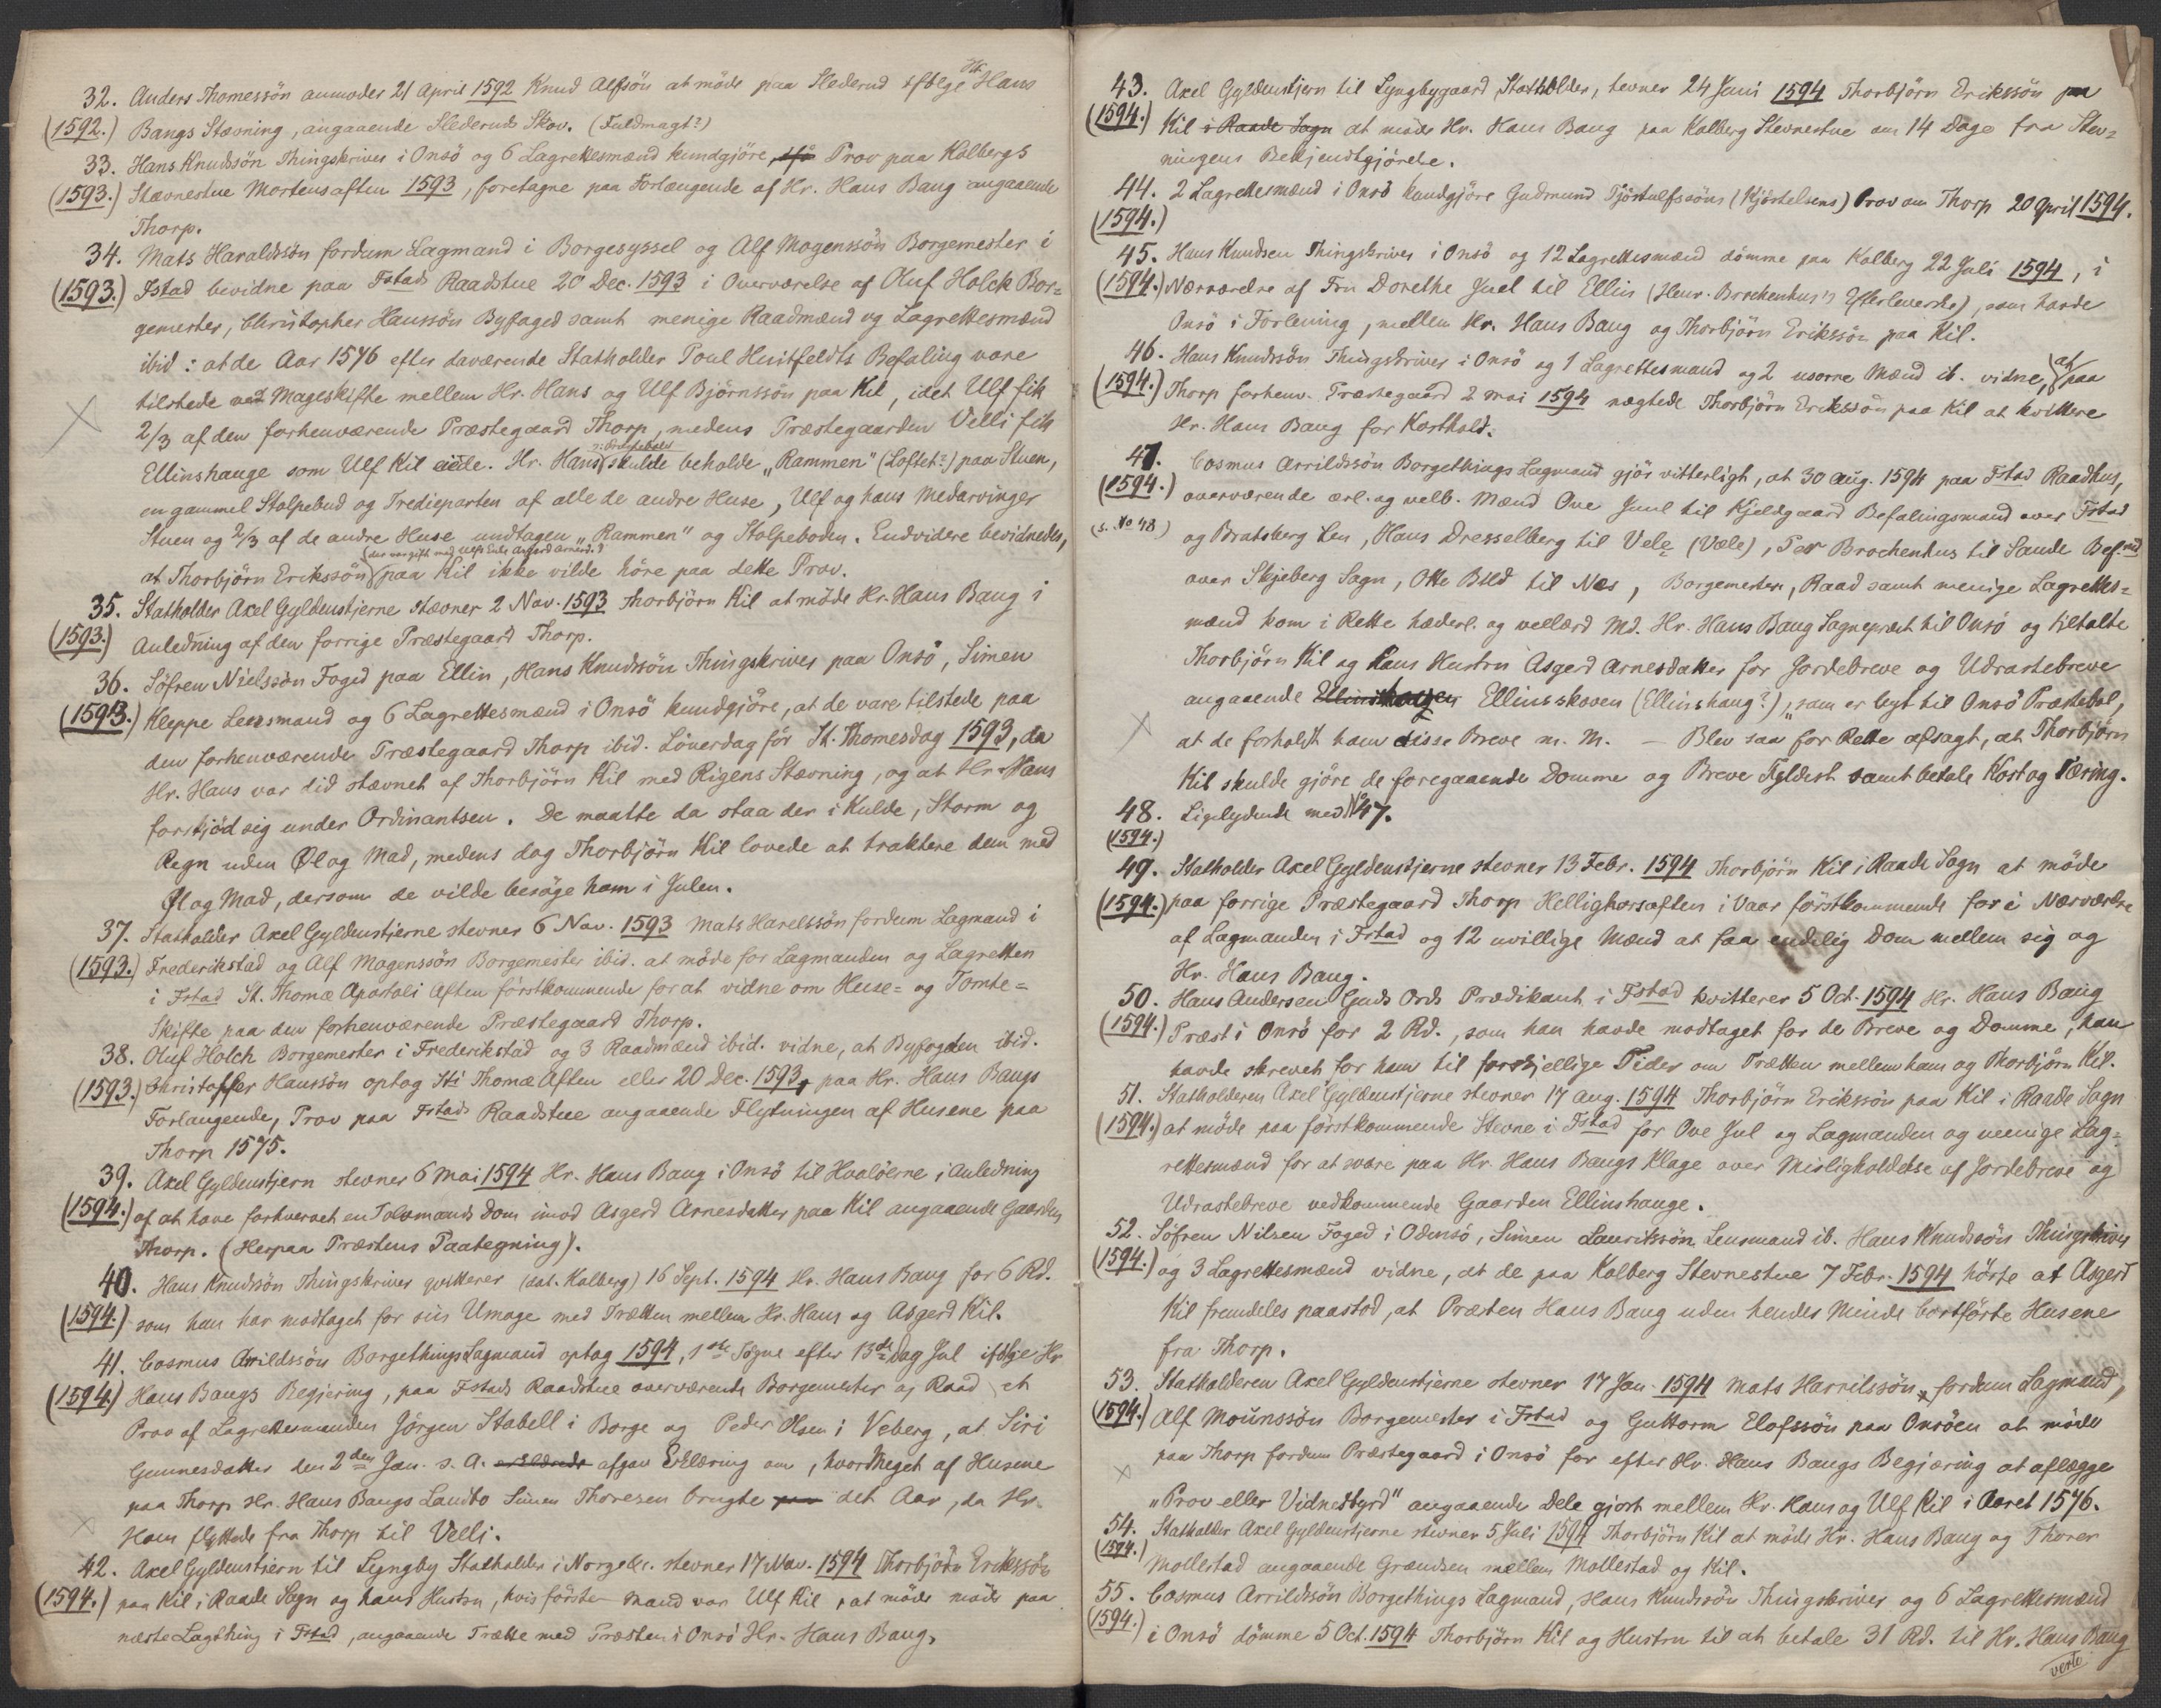 32. Anders Thomessön anmoder 21 April 1592 Knud Alfsön at möde paa Slederud ifölge Hr. Hans
(1592.) Bangs Stævning, angaaende Slederuds Skov. (Fuldmagt?)
33. Hans Knudssön Thingskriver i Onsö og 6 Lagrettesmænd kundgjöre, Prov paa Kolbergs
(1593.) Stævnestue Mortensaften 1593, foretagne paa Forlængende af Hr. Hans Bang angaaende
Thorp.
34. Mats Haraldssön fordum Lagmand i Borgesyssel og Alf Mogenssön Borgemester i
(1593.) Fstad bevidne paa Fstads Raadstue 20 Dec. 1593 i Overværelse af Oluf Holck Bor=
gemester, Christopher Hanssön Byfoged samt menige Raadmænd og Lagrettesmænd
ibid: at de Aar 1576 efter daværende Statholder Poul Huitfeldts Befaling vare
tilstede ved Mageskifte mellem Hr. Hans og Ulf Björnssön paa Kil, idet Ulf fik
2/3 af den forhenværende Præstegaard Thorp, medens Præstegaarden Velli fik
Ellinshauge som Ulf Kil eiede. Hr. Hans (ɔ: Præstebolet) skulde beholde „Rammen" (Loftet?) paa Stuen,
en gammel Stolpebud og Tredieparten af alle de andre Huse, Ulf og hans Medarvinger
Stuen og 2/3 af de andre Huse undtagen „Rammen" og Stolpeboden. Endvidere bevidnedes,
at Thorbjörn Erikssön (der var gift med Ulfs Enke Asgerd Arnesd.) paa Kil ikke vilde höre paa dette Prov.
35. Statholder Axel Gyldenstjerne stævner 2 Nov. 1593 Thorbjörn Kil at möde Hr. Hans Bang i
(1593.) Anledning af den forrige Præstegaard Thorp.
36. Söfren Nielssön Foged paa Ellin, Hans Knudssön Thingskriver paa Onsö, Simen
(1593.) Kleppe Lensmand og 6 Lagrettesmænd i Onsö kundgjöre, at de vare tilstede paa
den forhenværende Præstegaard Thorp ibid. Löverdag för St. Thomesdag 1593, da
Hr. Hans var did stævnet af Thorbjörn Kil med Rigens Stævning, og at Hr. Hans
forskjöd sig under Ordinantsen. De maatte da staa der i Kulde, Storm og
Regn uden Øl og Mad, medens dog Thorbjörn Kil lovede at traktere dem med
Øl og Mad, dersom de vilde besöge ham i Julen.
37. Statholder Axel Gyldenstjerne stevner 6 Nov. 1593 Mats Harelssön fordum Lagmand i
(1593.) Frederikstad og Alf Mogenssön Borgemester ibid. at möde for Lagmanden og Lagretten
i Fstad St. Thomæ Apostoli Aften förstkommende for at vidne om Huse= og Tomte=
Skifte paa den forhenværende Præstegaard Thorp.
38. Oluf Holck Borgemester i Frederikstad og 3 Raadmænd ibid. vidne, at Byfogden ibid.
(1593.) Christoffer Hanssön optog Sti Thomæ Aften eller 20 Dec. 1593, paa Hr. Hans Bangs
Forlangende, Prov paa Fstads Raadstue angaaende Flytningen af Husene paa
Thorp 1575.
39. Axel Gyldenstjern stevner 6 Mai 1594 Hr. Hans Bang i Onsö til Hvalöerne i Anledning
(1594.) af at have forhvervet en Tolvmands Dom imod Asgerd Arnesdatter paa Kil angaaende Gaarden
Thorp. (Herpaa Præstens Paategning).
40. Hans Knudssön Thingskriver qvitterer (dat. Kolberg) 16 Sept. 1594 Hr. Hans Bang for 6 Rd.
(1594.) som han har modtaget for sin Umage med Trætten mellem Hr. Hans og Asgerd Kil.
41. Cosmus Arrildssön BorgethingsLagmand optog 1594, 1ste Sögne efter 13de dag Jul ifölge Hr
(1594.) Hans Bangs Begjering, paa Fstads Raadstue overværende Borgemester og Raad et
Prov af Lagrettesmanden Jörgen Stabell i Borge og Peder Olsen i Veberg, at Siri
Gunnesdatter den 2den Jan. s. A. afgav Erklæring om, hvor Meget af Husene
paa Thorp Hr. Hans Bangs Landbo Simen Thoresen brugte det Aar, da Hr.
Hans flyttede fra Thorp til Velli.
42. Axel Gyldenstjern til Lyngby Statholder i Norge &c. stevner 17 Nov. 1594 Thorbjörn Erikssön
(1594.) paa Kil i Raade Sogn og hans Hustru, hvis förste Mand var Ulf Kil, at möde möde paa
næste Lagthing i Fstad, angaaende Trætte med Præsten i Onsö Hr. Hans Bang.
43. Axel Gyldenstjern til Lyngbygaard, Statholder, stevner 24 Juni 1594 Thorbjörn Erikssön paa
(1594.) Kil i Raade Sogn at möde Hr. Hans Bang paa Kolberg Stevnestue om 14 Dage fra Stev=
ningens Bekjendtgjörelse.
44. 2 Lagrettesmænd i Onsö kundgjöre Gudmund Tjöstulfssöns (Kjöstelsens) Prov om Thorp 20 April 1594.
(1594.)
45. Hans Knudsen Thingskriver i Onsö og 12 Lagrettesmænd dömme paa Kolberg 22 Juli 1594, i
(1594.) Nærværelse af Fru Dorethe Juel til Ellin (Henr. Brockenhus's Efterleverske), som havde
Onsö i Forlening, mellem Hr. Hans Bang og Thorbjörn Erikssön paa Kil.
46. Hans Knudssön Thingskriver i Onsö og 1 Lagrettesmand og 2 usorne Mænd ib. vidne, at paa
(1594.) Thorp forhenv. Præstegaard 2 Mai 1594 nægtede Thorbjörn Erikssön paa Kil at kvittere
Hr. Hans Bang for Korthold.
47. Cosmus Arrildssön Borgethings Lagmand gjör vitterligt, at 30 Aug. 1594 paa Fstad Raadhus,
(1594.) overværende ærl. og velb. Mænd Ove Juul til Kjeldgaard Befalingsmand over Fstad
(s. No 48) og Bratsberg Len, Hans Dresselberg til Vele (Væle), Per Brockenhus til Sande Bef.md
over Skjeberg Sogn, Otte Bild til Næs, Borgemestere, Raad samt menige Lagrettes=
mænd kom i Rette hæderl. og vellærd Md. Hr. Hans Bang Sognepræst til Onsö og tiltalte
Thorbjörn Kil og Hans Hustru Asgerd Arnesdatter for Jordebreve og Udrastebreve
angaaende Ellinshaugen Ellinsskoven (Ellinshaug?), „som er lagt til Onsö Præstebol,
at de forholdt ham disse Breve m. M. — Blev saa for Rette afsagt, at Thorbjörn
Kil skulde gjöre de foregaaende Domme og Breve Fyldest samt betale Kost og Tæring.
48. Ligelydende med No 47.
(1594.)
49. Statholder Axel Gyldenstjerne stevner 13 Febr. 1594 Thorbjörn Kil i Raade Sogn at möde
(1594.) paa forrige Præstegaard Thorp Hellighorsaften i Vaar förstkommende for i Nærværelse
af Lagmanden i Fstad og 12 uvillige Mænd at faa endelig Dom mellem sig og
Hr. Hans Bang.
50. Hans Andersen Guds Ords Prædikant i Fstad kvitterer 5 Oct. 1594 Hr. Hans Bang
(1594.) Præst i Onsö for 2 Rd., som han havde modtaget for de Breve og Domme, han
havde skrevet for ham til forskjellige Tider om Trætten mellem ham og Thorbjörn Kil.
51. Statholderen Axel Gyldenstjerne stevner 17 Aug. 1594 Thorbjörn Erikssön paa Kil i Raade Sogn
(1594.) at möde paa förstkommende Stevne i Fstad for Ove Jul og Lagmanden og menige Lag=
rettesmænd for at svare paa Hr. Hans Bangs Klage over Misligholdelse af Jordebreve og
Udrastebreve vedkommende Gaarden Ellinshauge.
52. Söfren Nilsen Foged i Odensö, Simen Lauritssön Lensmand ib. Hans Knudssön Thingskriver
(1594.) og 3 Lagrettesmænd vidne, at de paa Kolberg Stevnestue 7 Febr. 1594 hörte at Asgerd
Kil fremdeles paastod, at Præsten Hans Bang uden hendes Minde bortförte Husene
fra Thorp.
53. Statholderen Axel Gyldenstjerne stevner 17 Jan. 1594 Mats Harrilssön, fordum Lagmand,
(1594.) Alf Mounssön Borgemester i Fstad og Guttorm Elofssön paa Onsöen at möde
paa Thorp fordum Præstegaard i Onsö for efter Hr. Hans Bangs Begjæring at aflægge
„Prov eller Vidnesbyrd" angaaende Dele gjort mellem Hr. Hans og Ulf Kil i Aaret 1576.
54. Statholder Axel Gyldenstjerne stevner 5 Juli 1594 Thorbjörn Kil at möde Hr. Hans Bang og Thorer
(1594.) Mollestad angaaende Grændsen mellem Mollestad og Kil.
55. Cosmus Arrildssön Borgethings Lagmand, Hans Knudssön Thingskriver og 6 Lagrettesmænd
(1594.) i Onsö dömme 5 Oct. 1594 Thorbjörn Kil og Hustru til at betale 31 Rd. til Hr. Hans Bang
verte